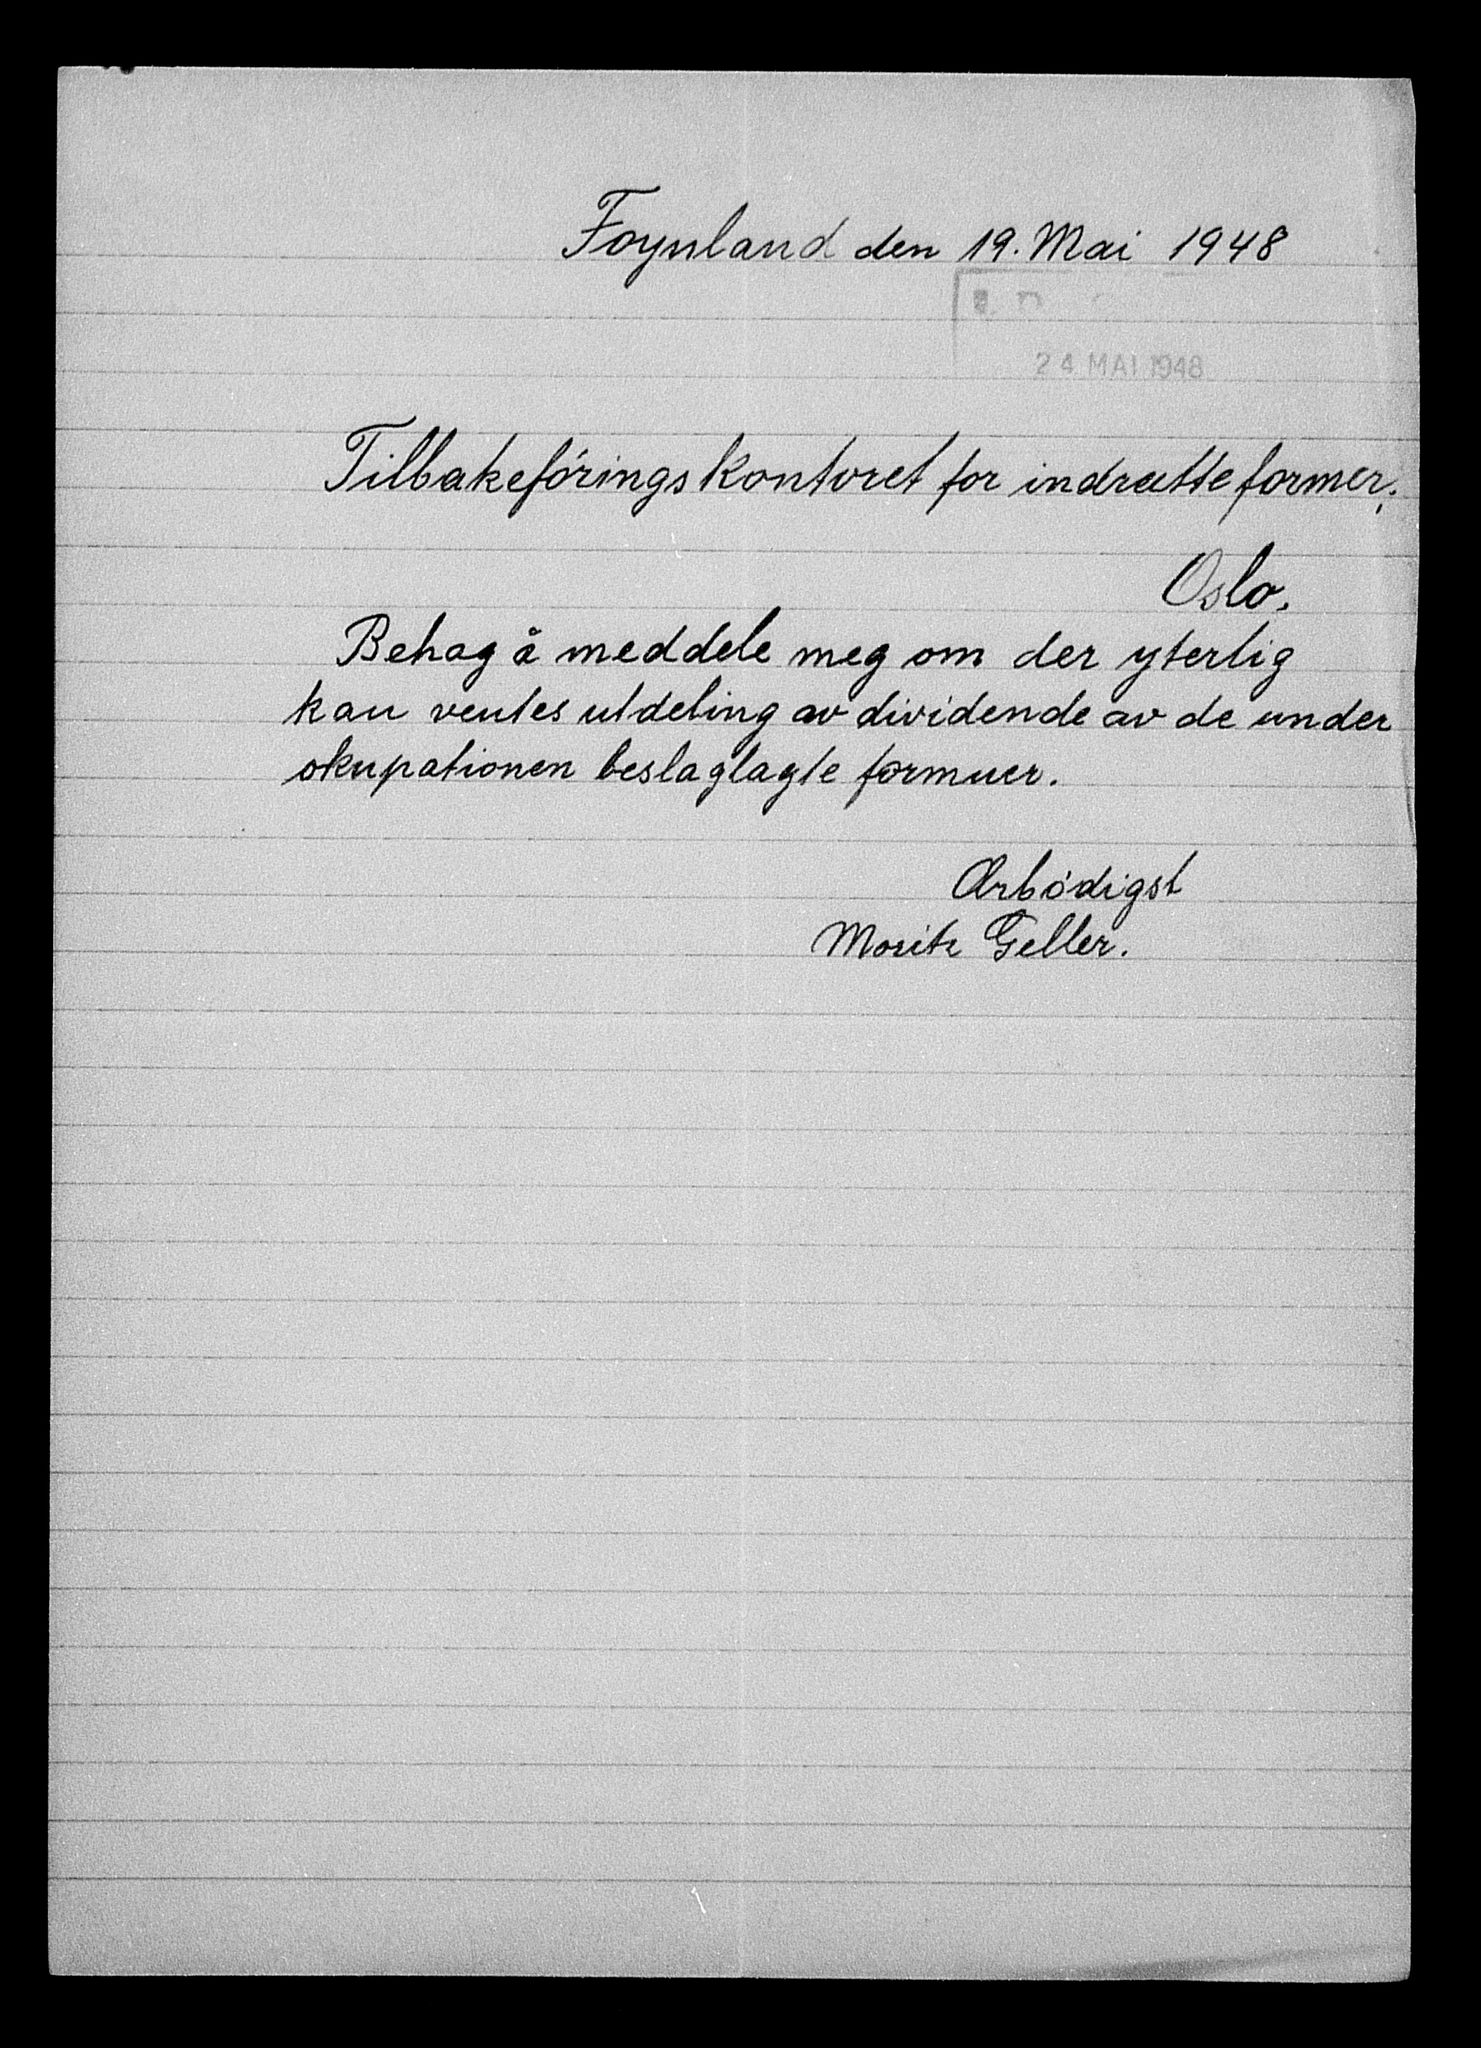 Foynland den 19. Mai 1948
24 MAI 1948
Tilbakeförings Kontoret for indratte former.
Oslo.
Behag å meddele meg om der yterlig
kan ventes utdeling av dividende av de under
okupationen beslaglagte formuer.
Ærbödigst
Moritz Geller.